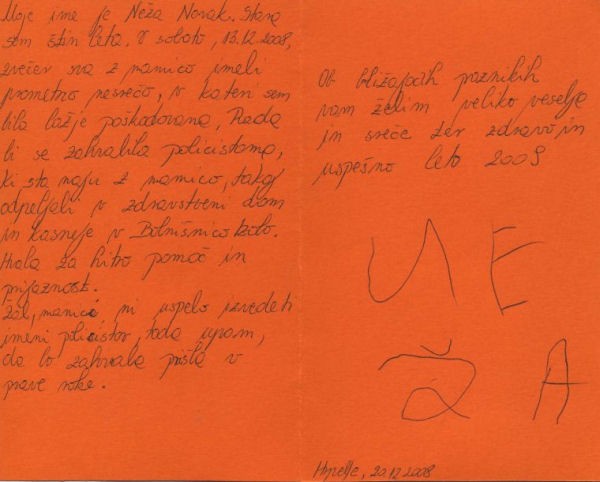 Moje ime je Neža Novak. Stara
sem štiri leta. V soboto, 13.12.2008,
zvečer sva z mamico imeli
prometno nesrečo, v kateri sem
bila lažje poškodovana. Rada
bi se zahvalila policistoma,
ki sta naju z mamico, takoj
odpeljali v zdravstveni dom
in kasneje v Bolnišnico Izola.
Hvala za hitro pomoč in
prijaznost.
Žal, mamici ni uspelo izvedeti
imeni policistov, toda upam,
da bo zahvala prišla v
prave roke.
Ob bližajočih praznikih
vam želim veliko veselja
in sreče ter zdravo in
uspešno leto 2009
NE
ŽA
20.12.2008